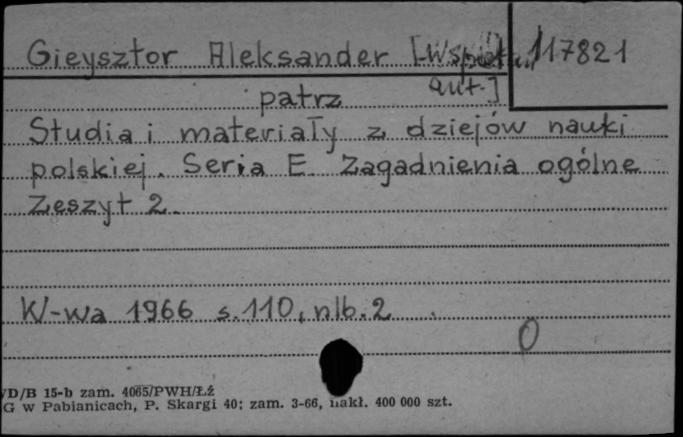 Gieysztor Aleksander [współ 117821
aut.]
patrz
Studia i materiały z dziejów nauki
polskiej. Seria E. Zagadnienia ogólne
Zeszyt 2.
W-wa 1966 s.110, nlb.2
0
/D/B 15-b zam. 4065/PWH/Łź
G w Pabianicach, P. Skargi 40; zam. 3-66, nakł. 400 000 szt.